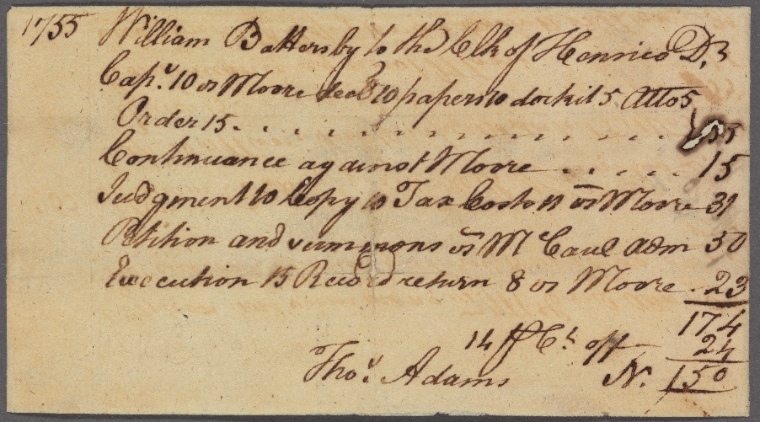 1755 William Battersby to the Clk of Henrico Dr
Capᵃ. 10 vs Moore decl 10 papers 10 dockit 5 Atto 5
Order 15 . . . . . . . . . . . . 55
Continuance against Moore . . . . . 15
Judgment 10 Copy 10 Tax Costs 11 vs Moore 31
Petition and summons vs McCaul adm 50
Execution 15 Record return 8 vs Moore . 23
174
14 ⅌ Ct off 24
Thos. Adams N. 150